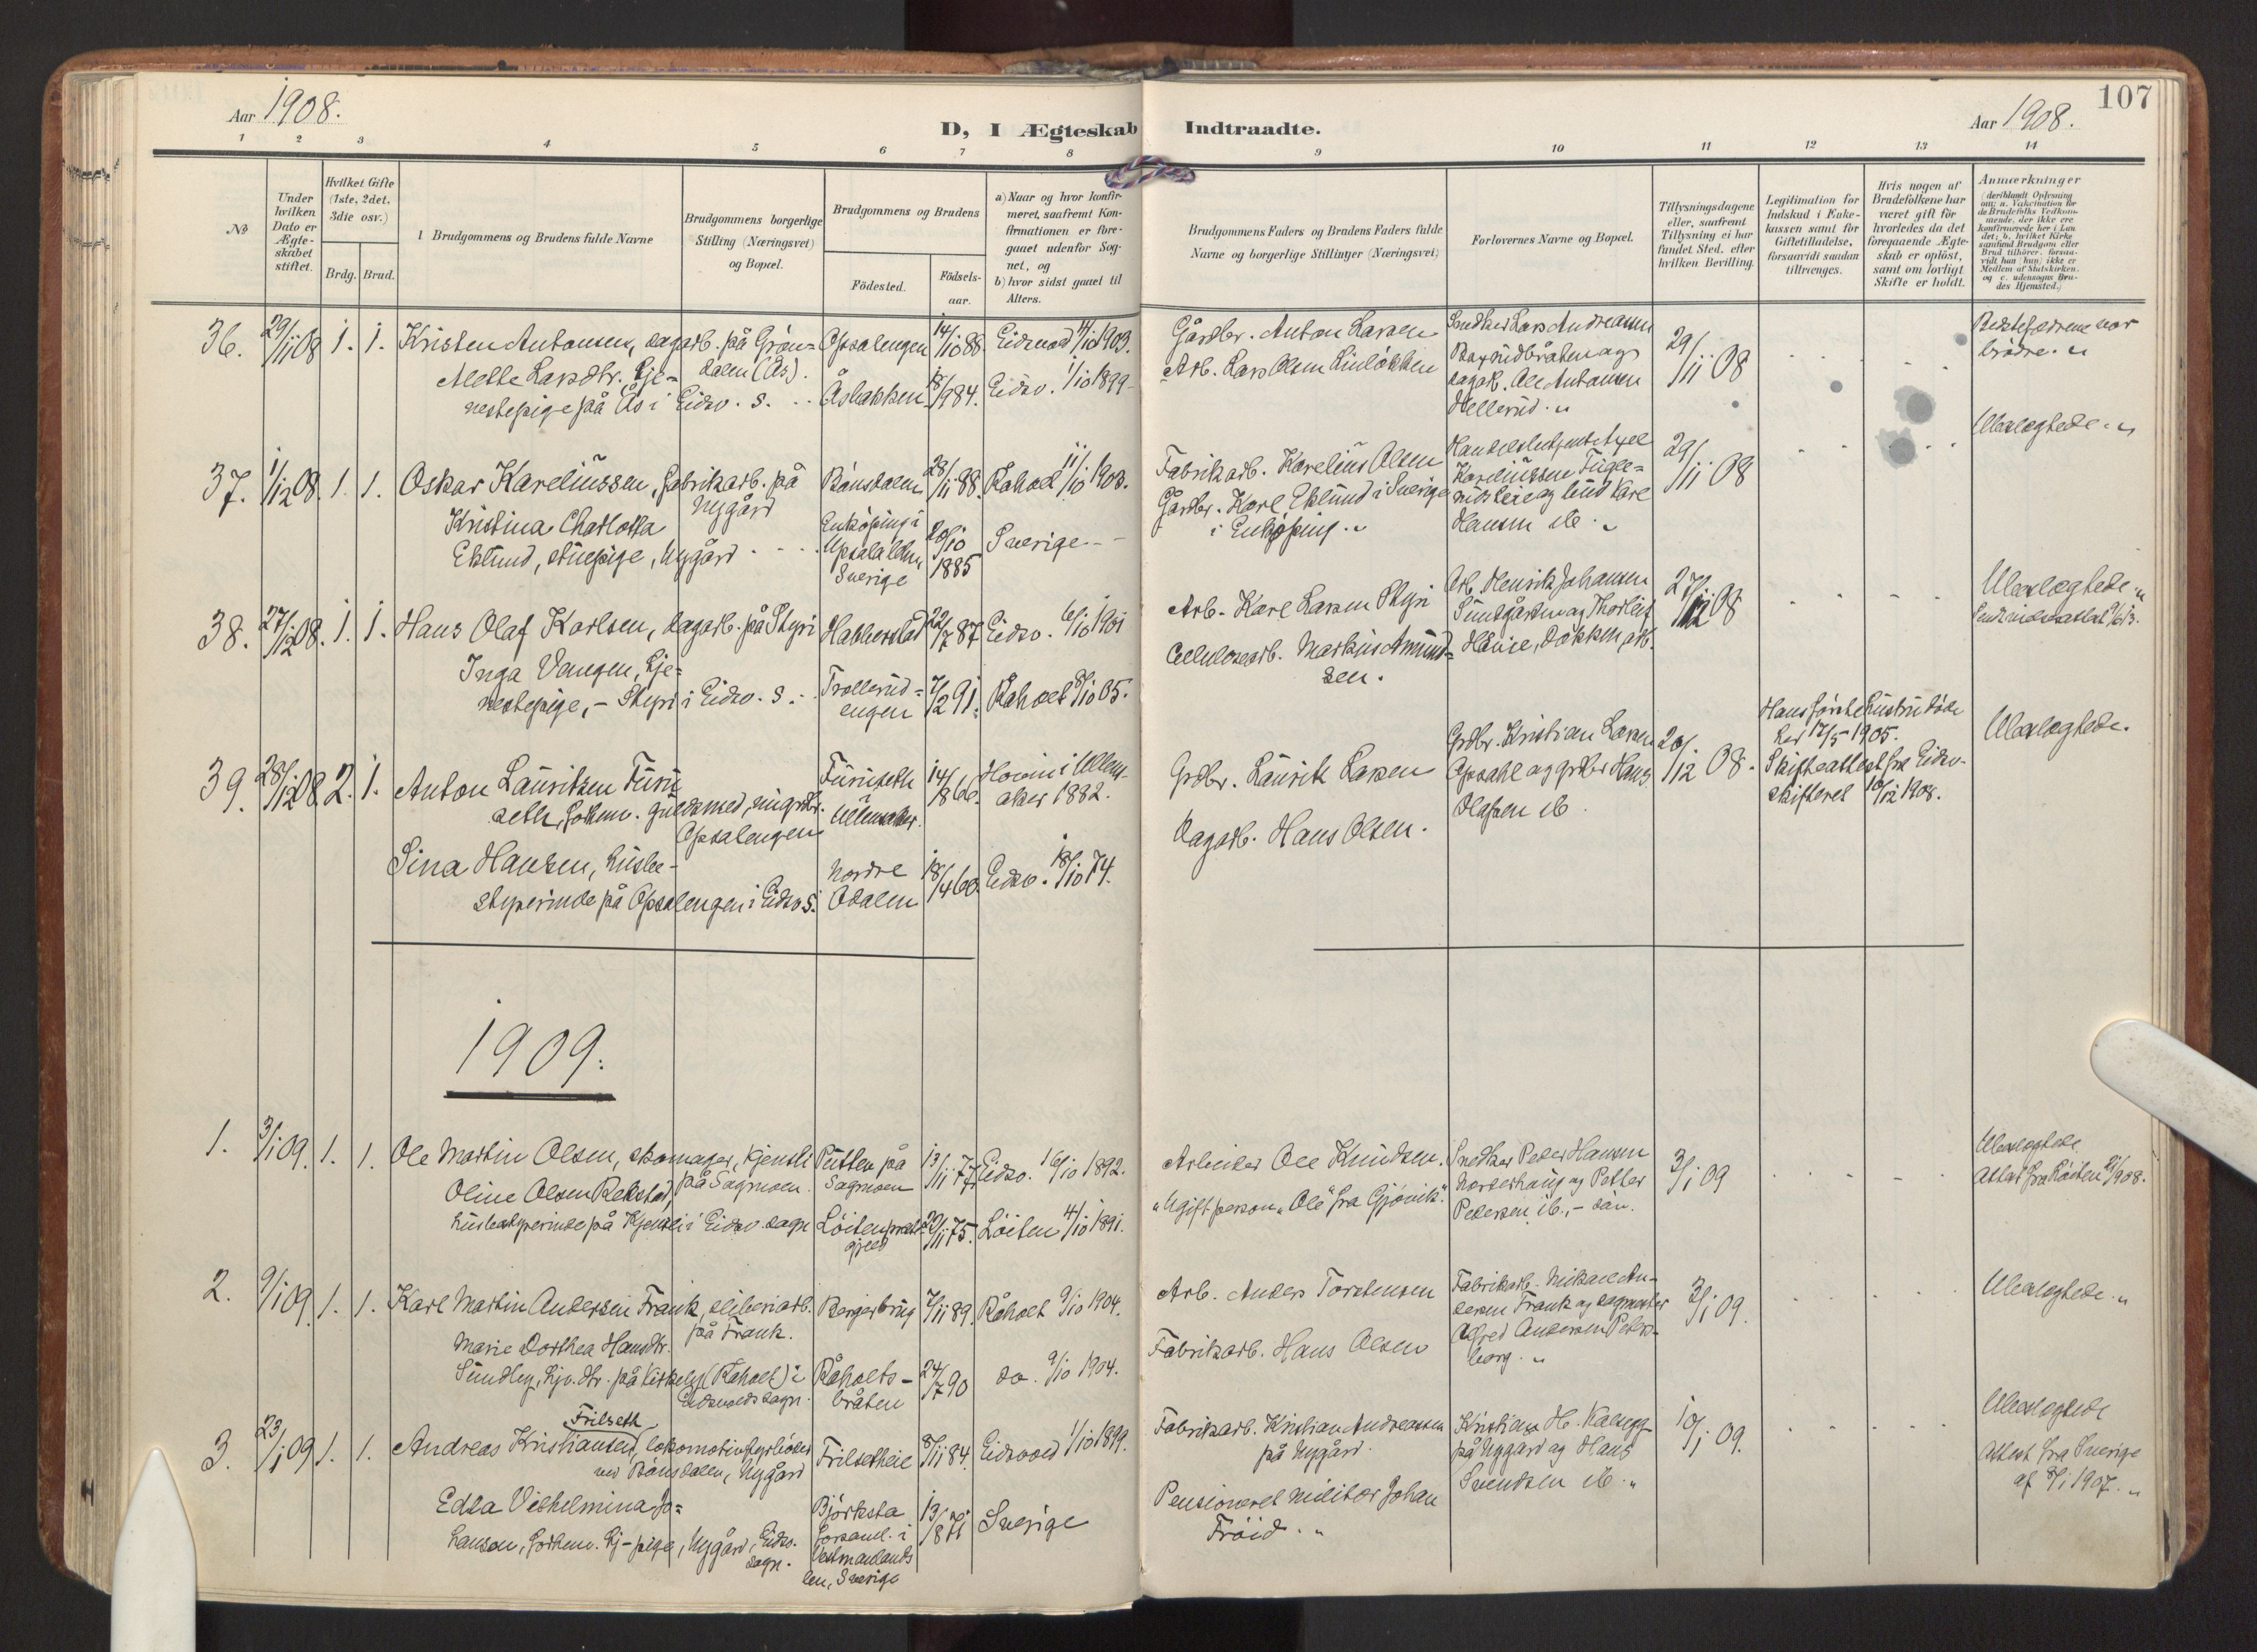 Aar 1908.
D, I Ægteskab Indtraadte.
Aar 1908.
107
1 2 3 4 5 6 7 8 9 10 11 12 13 14
No
Under hvilken Dato er Ægteskabet stiftet.
Hvilket Gifte (1ste, 2det, 3die osv.)
Brdg. Brud.
Brudgommens og Brudens fulde Navne
Brudgommens borgerlige Stilling (Næringsvei) og Bopæl.
Brudgommens og Brudens
Fødested.
Fødsels-aar.
a) Naar og hvor konfirmeret, saafremt Konfirmationen er foregaaet udenfor Sognet, og
b) hvor sidst gaaet til Alters.
Brudgommens Faders og Brudens Faders fulde Navne og borgerlige Stillinger (Næringsvei)
Forlovernes Navne og Bopæl.
Tillysningsdagene eller, saafremt Tillysning ei har fundet Sted, efter hvilken Bevilling.
Legitimation for Indskud i Enkekassen samt for Giftetilladelse, forsaavidt saadan tiltrænges.
Hvis nogen af Brudefolkene har været gift før hvorledes da det foregaaende Ægteskab er opløst, samt om lovligt Skifte er holdt.
Anmærkninger
36. 29/11 08 1. 1. Kristen Antonsen, dagarb. på Grøndalen (Ås). Opsalengen 14/10 88. Eidsvold 4/10 1903.
Mette Larsdtr. tjenestepige på Ås i Eidsv. s. Åsbakken 18/9 84. Eidsv. 1/10 1899
Gårdbr. Anton Larsen
Arb. Lars Olsen Linløkken
Snedker Lars Andreassen
dagarb. Ole Antonsen
Hellerud
29/11 08
Bedstefædrene var brødre.
37. 1/12 08. 1. 1. Oskar Kareliussen, fabrikarb. på Nygård Bönsdalen 28/11 88. Råholt 11/10 1903.
Kristina Charlotta
Eklund, stuepige, Nygård Enköping i Upsala län, Sverige 20/10 1885 Sverige
Fabrikarb. Karelius Olsen
Gårdbr. Karl Eklund i Sverige
i Enköping
Handelsbetjent Axel
Kareliussen
Hansen ib.
29/11 08
Ubeslægtede
38. 27/12 08. 1. 1. Hans Olaf Karlsen, dagarb. på Styri Habberstad 22/7 87 Eidsv. 6/10 1901
Inga Vangen, tjenestepige, – Styri i Eidsv. s. Trollerudengen 7/2 91. Råholt 8/10 05.
Arb. Karl Larsen Styri
Cellulosearb. Markus Amundsen.
Arb. Henrik Johansen
27/12 08
Ubeslægtede
39. 28/12 08 2. 1. Anton Lauritsen Furuseth, forhenv. guldsmed, nu grdbr. Opsalengen Furuseth Ullensaker. 14/1 860. Hovin i Ullensaker 1882.
Sina Hansen, husbestyrerinde på Opsalengen i Eidsv. s. Nordre Odalen 18/4 60. Eidsv. 18/10 74.
Grdbr. Laurits Larsen
Dagarb. Hans Olsen.
Grdbr. Kristian Larsen
Opsahl og grdbr Hans
Olafsen ib.
20/12 08.
Hans første hustru døde
her 17/5 1905.
Skifteattest fra Eidsv.
skifteret 10/12 1908.
Ubeslægtede.
1909.
1. 3/1 09. 1. 1. Ole Martin Olsen, skomager, Kjensli på Sagmoen. Putten på Sagmoen 13/11 77 Eidsv. 16/10 1892.
Oline Olsen Rekstad,
husbestyrerinde på Kjensli i Eidsv. sogn Löiten prestegjeld 20/11 75. Löiten 4/10 1891.
Arbeider Ole Knudsen.
"Ugift person" "Ole" fra Gjøvik".
Snedker Peder Hansen
Norderhaug og Petter
Pedersen ib., – sön.
3/1 09
Ubeslægtede
Attest fra Löiten 1908.
2. 9/1 09. 1. 1. Karl Martin Andersen Frank, sliberiarb. på Frank. Bergerbrug 7/11 89. Råholt 9/10 1904.
Marie Dorthea Hansdtr.
Sundby, tjv. dtr. på Kirkeby (Råholt) i Eidsvolds sogn. Råholtsbråten 24/7 90 do. 9/10 1904.
Arb. Anders Torstensen
Fabrikarb. Hans Olsen
Fabrikarb. Mikael Andersen Frank og sagmester
Alfred Andersen Petersborg.
3/1 09.
Ubeslægtede
3. 23/1 09 1. 1. Andreas Kristiansen Frilseth, lokomotivfyrbøder
ved Bönsdalen, Nygård Frilsetheie 8/11 84. Eidsvold 1/10 1899.
Edla Vilhelmina Johanson, forhenv. tj-pige, Nygård, Eidsv. sogn. Björksta Forsaml. i Vestmanlands len, Sverige 13/8 Sverige
Fabrikarb. Kristian Andreassen
på Nygård.
Pensioneret Militær Johan
Fröid.
Kristian H. Kalsegg
på Nygård og Hans
Svendsen ib.
10/1 09.
Ubeslægtede
Attest fra Sverige
af 8/1 1907.